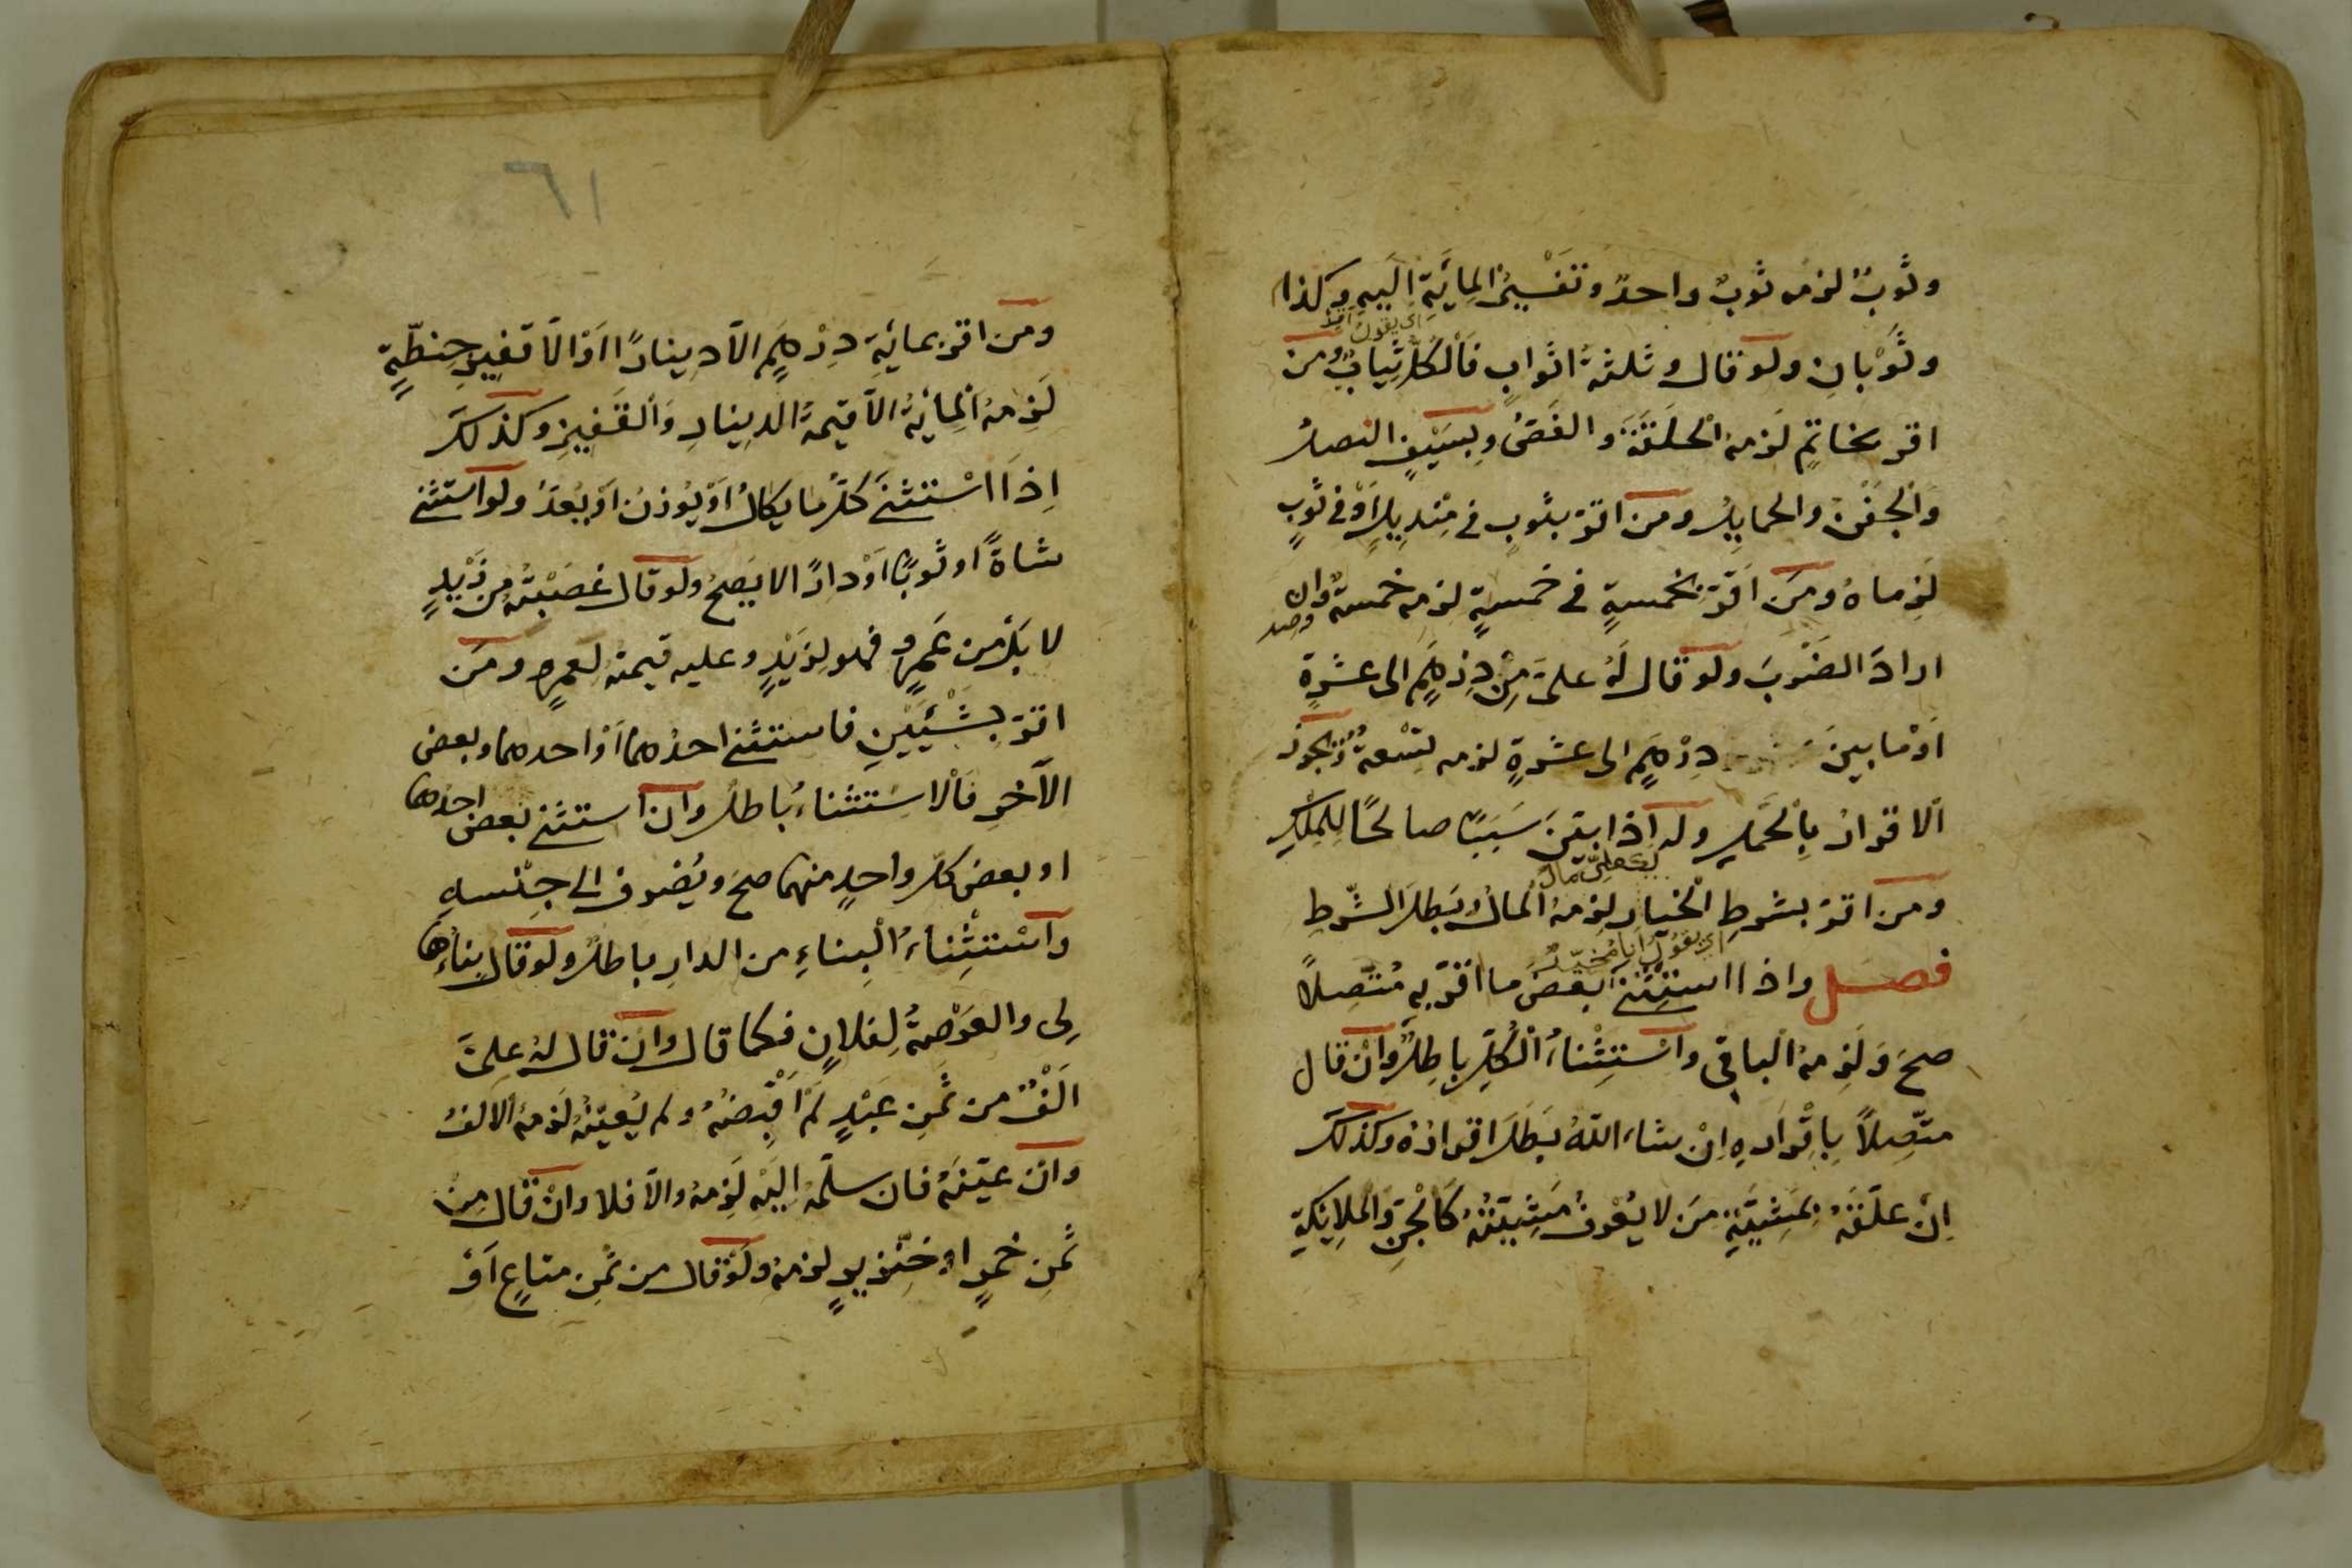 وثوبٌ لزمه ثوبٌ واحدٌ وتفسيرُ المائَةِ اليهِ وكذا
اى يقول
وثَوْبانِ ولو قال وثلثةُ اثوابٍ فالكُلُّ ثيابٌ ومن
اقر بخاتمٍ لزمه الحلقَةُ والفَصُّ وبسيفٍ النصلُ
والجَفْنُ والحمايلُ ومن اقرّ بثوبٍ فى مِنديلٍ اَوْ فى ثوبٍ
لَزِماهُ ومَن اقَرّ بخمسةٍ فى خمسةٍ لزمه خمسةٌ وان
ارادَ الضَّربَ ولو قال لَهُ علىَّ مِنْ دِرْهَمٍ الى عشرةٍ
اَوْ ما بينَ دِرْهَمٍ الى عشرةٍ لزمه تِسْعةٌ ويجوز
الاقرارُ بِالْحَمْلِ وله اذا بيّنَ سَبَبًا صالحًا لِلمِلْكِ
لفلان علىّ مال
ومن اقرّ بشرطِ الْخيارِ لزِمهُ المالُ وبَطلَ الشّرطِ
اى يقول انا مخيّر
فصل واذا استثنى بعضَ ما اقرّ بهِ مُتّصلاً
صحَ وَلَزِمهُ الباقى واسْتِثْناءُ الْكُلِّ باطِلٌ وانْ قال
متّصِلاً بِاِقْرارِهِ اِنْ شاءَ اللهُ بَطلَ اقرارُهُ وكذلك
اِنْ علّقَهُ بمَشِيّةِ مَن لا يُعْرفُ مَشِيّتُهُ كَالْجِنِّ وَالملايكةِ
٦١
ومن اقرّ بمائةِ دِرْهَمٍ الاّ دِينارًا اَوْ الاّ قفيزَ حِنطَةٍ
لَزِمهُ المائةُ الاّ قيمةُ الدينارِ والقَفيزِ وكذلك
اِذَا اسْتثنَى كلَّ ما يكالُ اَوْ يُوزنُ اَوْ يُعَدُّ ولو استثنى
شاةً اوثوبًا اَوْ دارًا لا يصحُ ولو قال غصَبْتُهُ من زَيْدٍ
لا بَلْ من عَمرٍو فهو لِزَيْدٍ وعليه قيمتهُ لِعَمرٍو ومَن
اقرّ بشَيْئَيْنِ فاستثنى احدَهما اَوْ احدهما وبعض
الآخرِ فالاستثناءُ باطلٌ وان استثنى بعض احدهما
او بعض كل واحدٍ منهما صحَ ويُصْرف الى جِنْسهِ
واسْتثْناءُ الْبِناءِ من الدارِ باطلٌ ولو قال بناؤُها
لِى والعَرْصةُ لِفلانٍ فكما قال وان قال لهُ علىَّ
اَلْفٌ من ثَمنِ عَبْدٍ لَمْ اقْبِضْهُ ولم يُعيّنْهُ لَزِمهُ الالفُ
وان عيّنَهُ فان سلّمهُ اليْهِ لَزِمهُ والاّ فلا وانْ قال مِنْ
ثَمنِ خمرٍ او خنزيرٍ لزمهُ ولَوْ قال من ثمنِ متاعٍ اَوْ